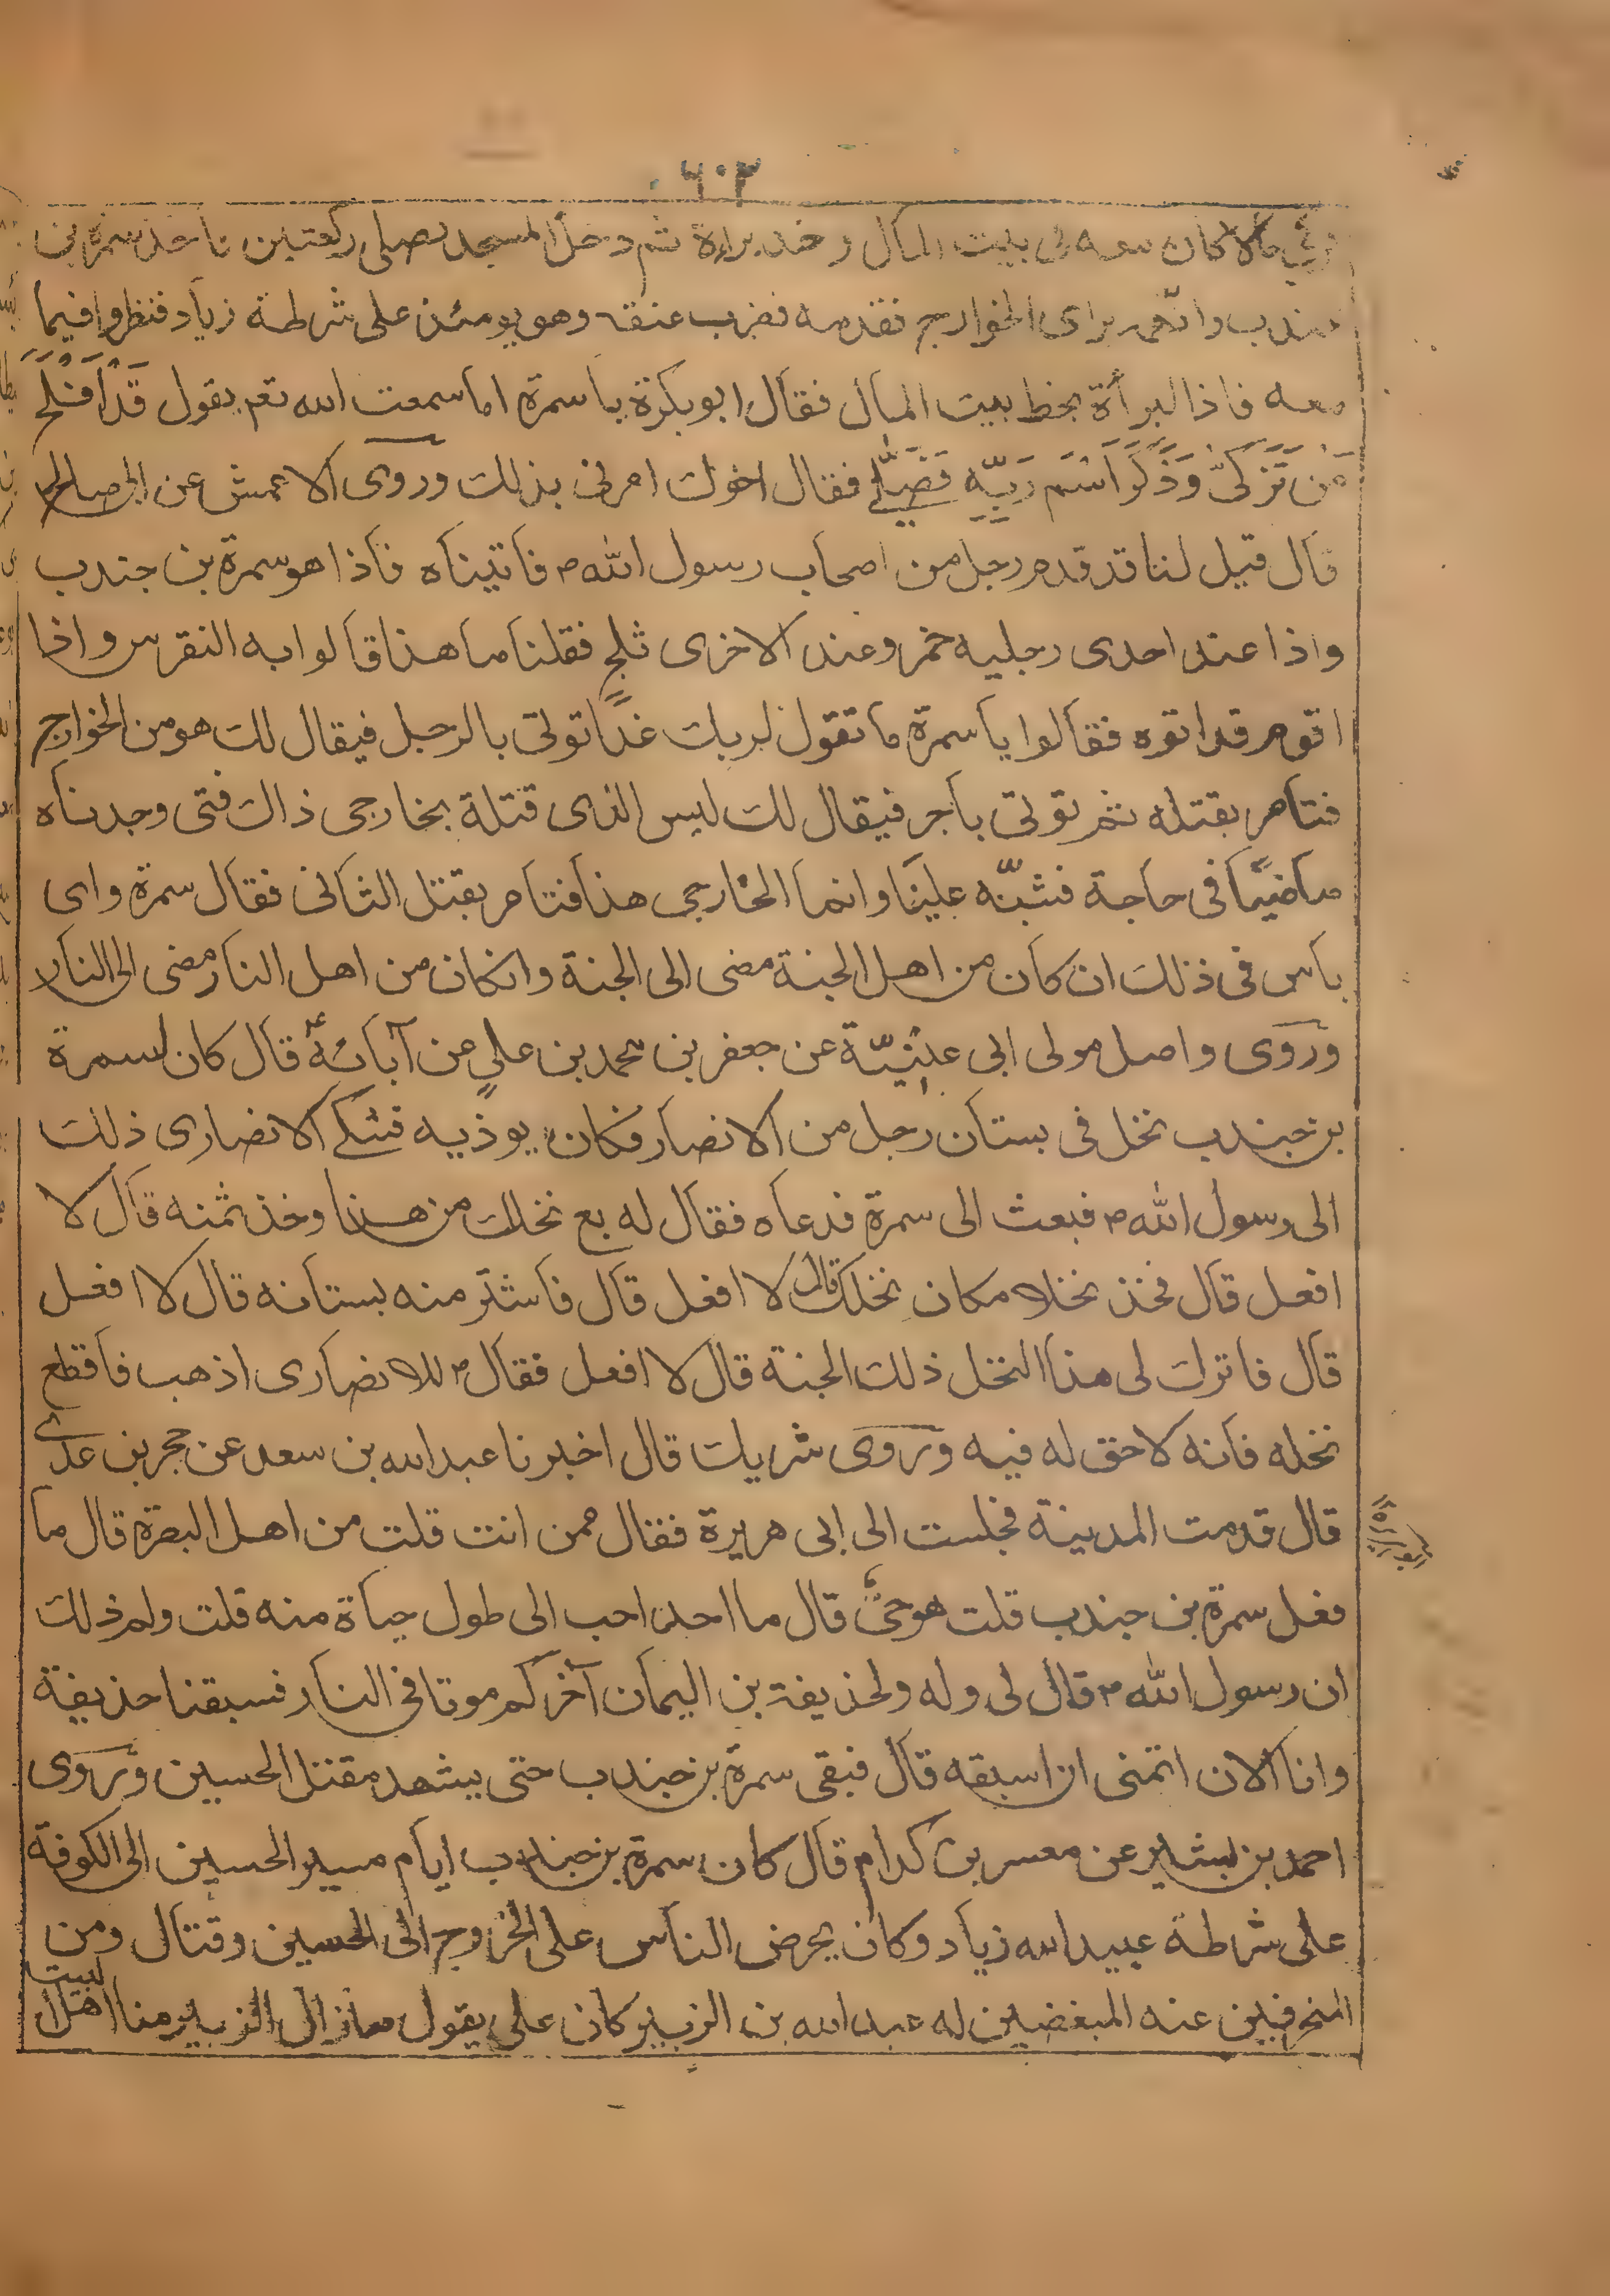 ٦٠٢
مالا كان معه فى بيت المال واخذ براءة ثم دخل المسجد فصلى ركعتين فاخذه سمرة بن
جندب واتهمه براى الخوارج فقدمه فضرب عنقه وهو يومئذ على شرطة زياد فنظروا فيما
معه فاذا البرأة بخط بيت المال فقال ابو بكرة يا سمرة اما سمعت الله تعم يقول قَدْ اَفْلَحَ
مَنْ تَزَكّىٰ وَذَكَرَ اسْمَ رَبِّهِ فَصَلّٰے فقال اخوك امرنى بذلك وروى الاعمش عن ابى صالح
قال قيل لنا قد قدم رجل من اصحاب رسول الله ص فاتيناه فاذا هو سمرة بن جندب
واذا عند احدى رجليه خمر وعند الاخرى ثلج فقلنا ما هذا قالوا به النقرس واذا
اقوم قد اتوه فقالوا يا سمرة ما تقول لربك غدًا توتى بالرجل فيقال لك هو من الخوارج
فتامر بقتله ثم توتى باخر فيقال لك ليس الذى قتلة بخارجى ذاك فتى وجدناه
ماضيًا فى حاجة فشبّه علينا وانما الخارجى هذا فتامر بقتل الثانى فقال سمرة واى
بأس فى ذلك ان كان من اهل الجنة مضى الى الجنة وانكان من اهل النار مضى الى النار
وروى واصل مولى ابى عيينة عن جعفر بن محمد بن علي عن آبائه ع قال كان لسمرة
بن جندب نخل فى بستان رجل من الانصار فكان يوذيه فشكے الانصارى ذلك
الى رسول الله ص فبعث الى سمرة فدعاه فقال له بع نخلك من هذا وخذ ثمنه قال لا
افعل قال فخذ نخلا مكان نخلك قال لا افعل قال فاشتر منه بستانه قال لا افعل
قال فاترك لى هذا النخل ذلك الجنة قال لا افعل فقال ص للانصارى اذهب فاقطع
نخله فانه لا حق له فيه وروى شريك قال اخبرنا عبد الله بن سعد عن حجر بن عدے
قال قدمت المدينة فجلست الى ابى هريرة فقال ممن انت قلت من اهل البصرة قال ما
فعل سمرة بن جندب قلت هو حىّ قال ما احد احب الى طول حياة منه قلت ولم ذلك
ان رسول الله ص قال لى وله ولحذيفة بن اليمان آخركم موتا فى النار فسبقنا حذيفة
وانا الان اتمنى ان اسبقه قال فبقى سمرة بن جندب حتى يشهد مقتل الحسين وروى
احمد بن بشير عن معسر بن كدام قال كان سمرة بن جندب ايام مسير الحسين الى الكوفة
على شرطة عبيد الله زياد وكان يحرض الناس على الخروج الى الحسين وقتال ومن
المنحرفين عنه المبغضين له عبد الله بن الزبير كان على يقول مازال الزبير منا اهل البيت